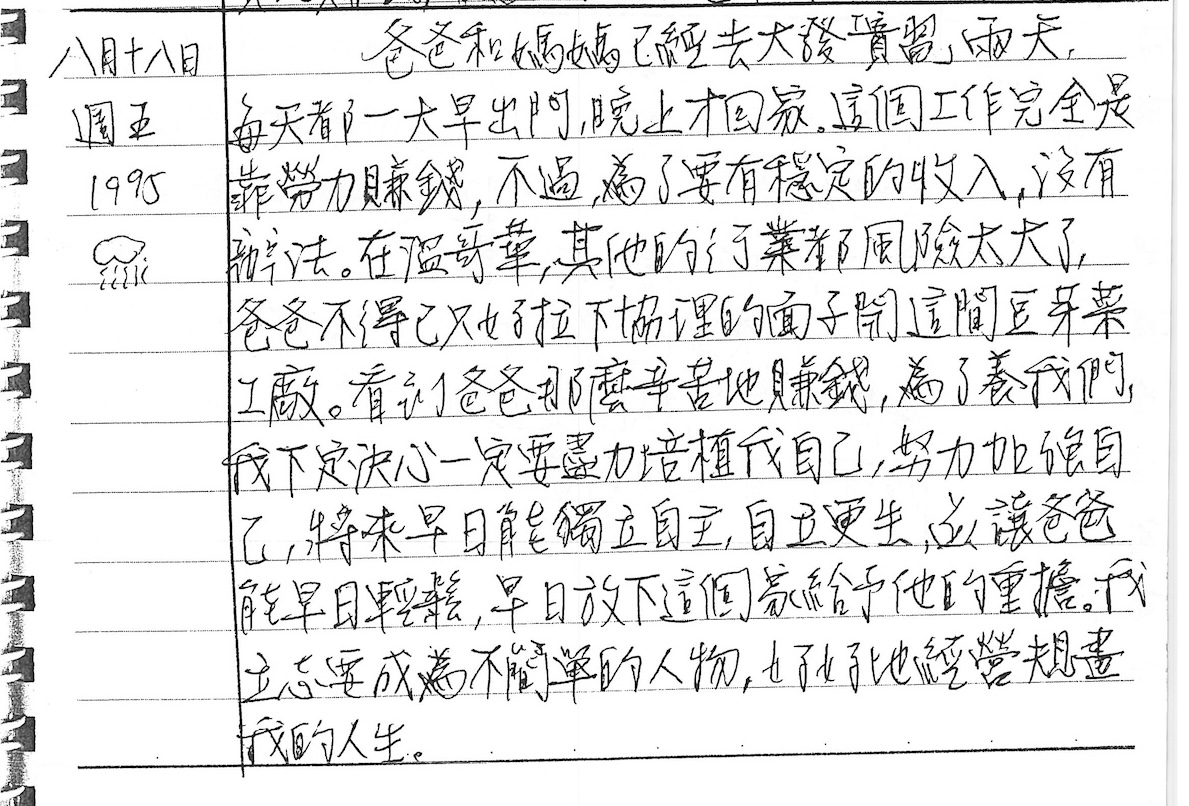 八月十八日
週五
1995
爸爸和媽媽已經去大發「實習」兩天,
每天都一大早出門,晚上才回家。這個工作完全是
靠勞力賺錢,不過,為了要有穩定的收入,沒有
辦法。在溫哥華,其他的行業都風險太大了,
爸爸不得已只好拉下協理的面子開這間豆芽菜
工廠。看到爸爸那麼辛苦地賺錢,為了養我們,
我下定決心一定要盡力培植我自己,努力加強自
己,將來早日能獨立自主,自立更生,並讓爸爸
能早日輕鬆,早日放下這個家給予他的重擔。我
立志要成為不簡單的人物,好好地經營規畫
我的人生。